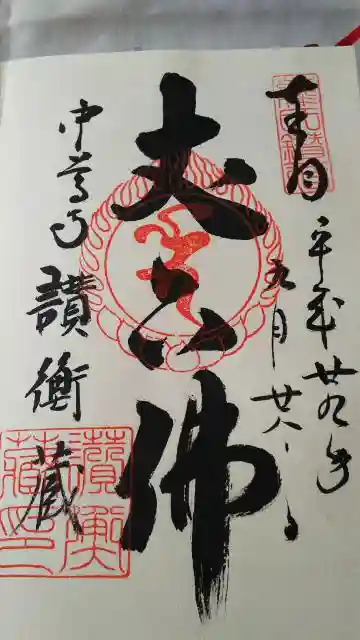 奉拝
平成廿九年
五月廿八日
大日佛
中尊寺
讃衡蔵
讃衡蔵印